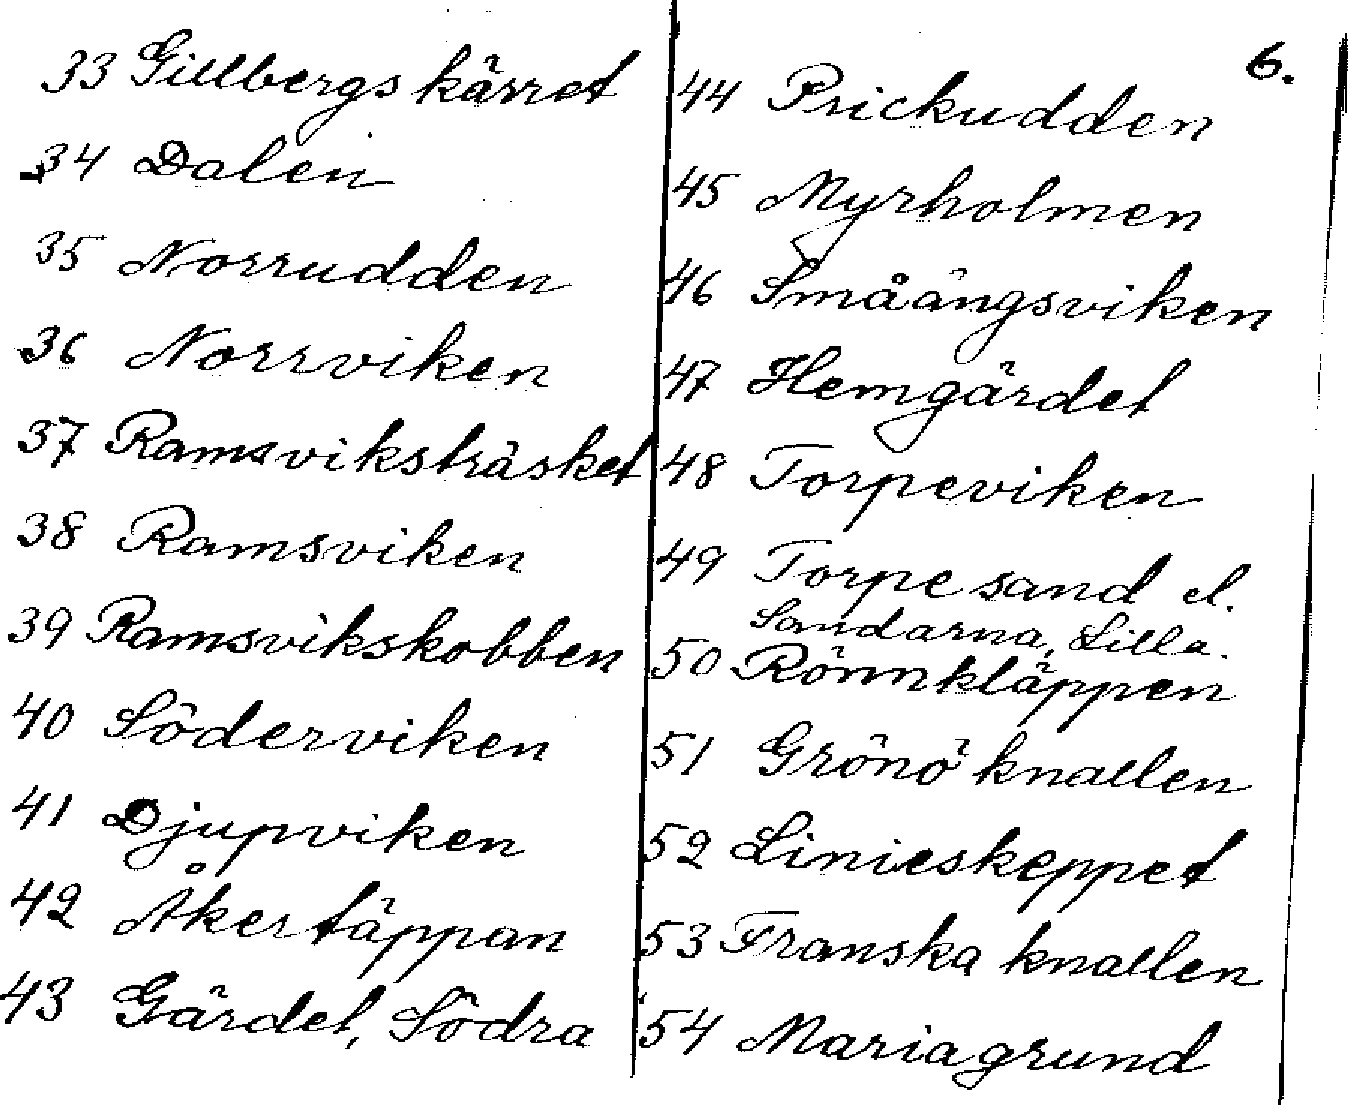 6.
33 Gillbergskärret
34 Dalen
35 Norrudden
36 Norrviken
37 Ramsviksträsket
38 Ramsviken
39 Ramsvikskobben
40 Söderviken
41 Djupviken
42 Åkertäppan
43 Gärdet, Södra
44 Prickudden
45 Myrholmen
46 Småängsviken
47 Hemgärdet
48 Torpeviken
49 Torpesand el.
Sandarna, Lilla.
50 Rönnkläppen
51 Grönö knallen
52 Linieskeppet
53 Franska knallen
54 Mariagrund